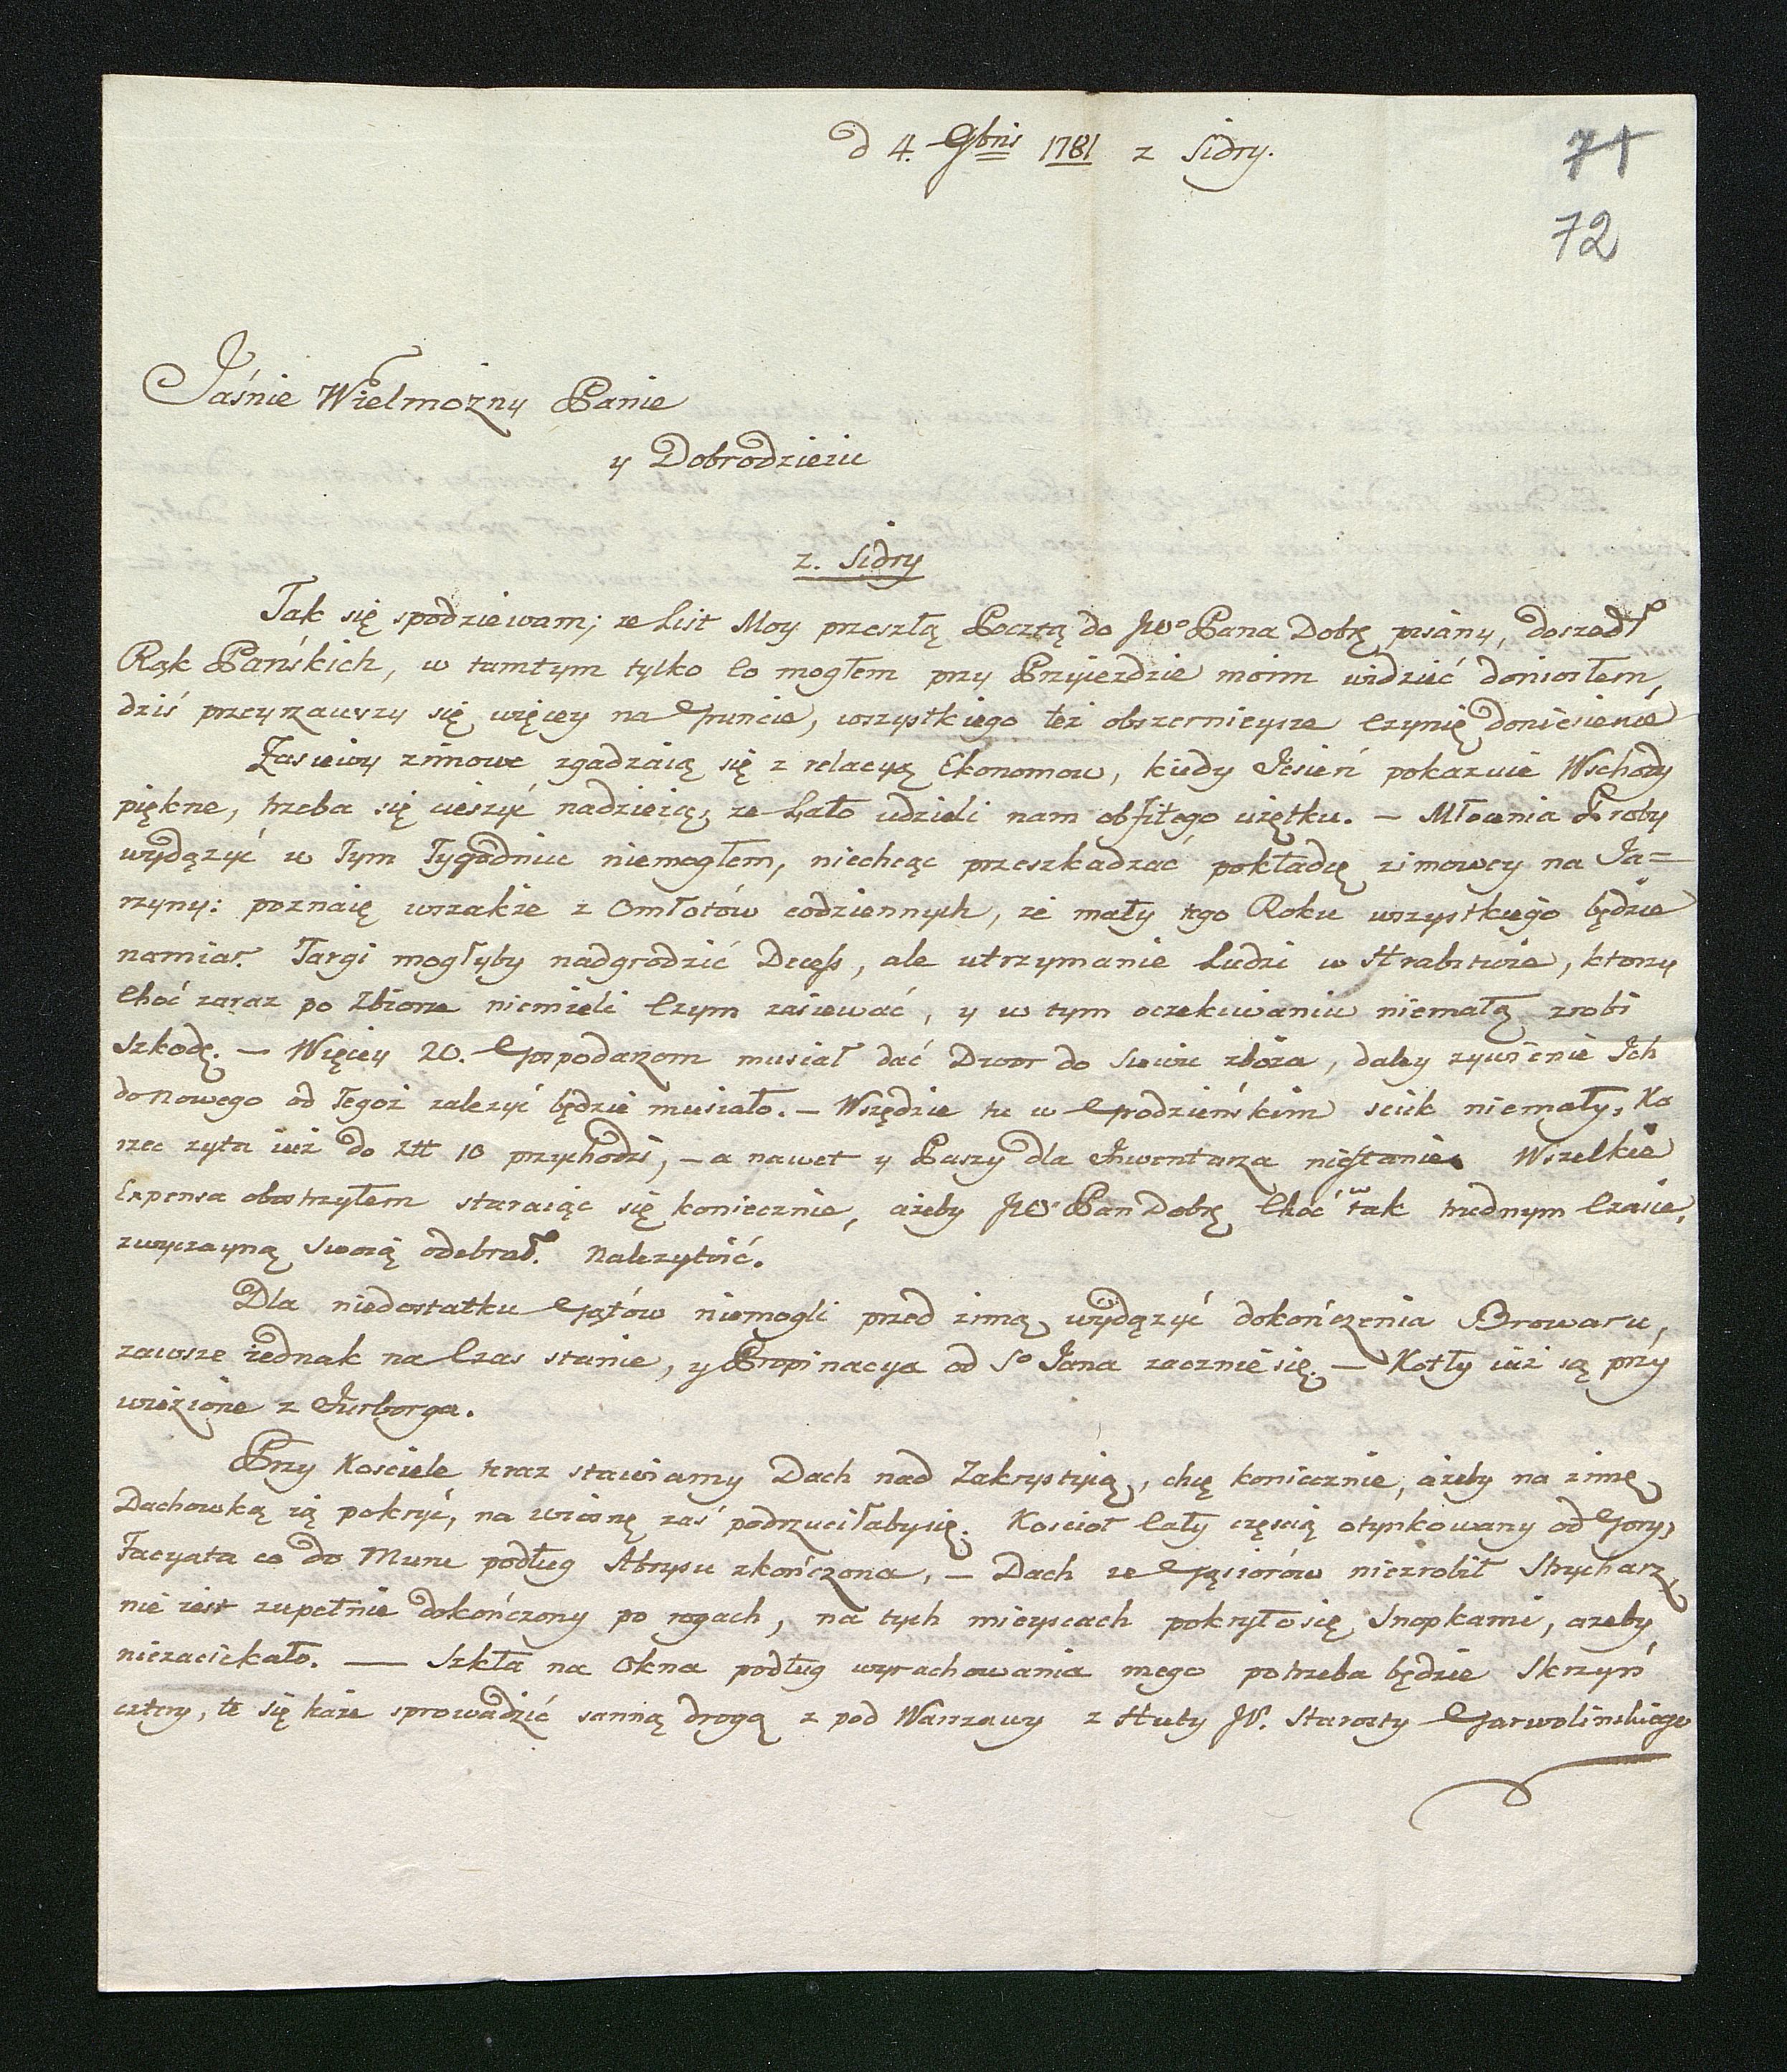 d 4. 9bris 1781 z Sidry.
71
72
Jaśnie Wielmożny Panie
y Dobrodzieiu
z. Sidry
Tak się spodziewam; ze List Moy przeszłą Pocztą do JWo Pana Dobr pisany, doszedł
Rąk Pańskich, w tamtym tylko Co mogłem przy Przyiezdzie moim widzieć doniosłem,
dziś przeyrzawszy się więcey na Gruncie, wszystkiego też obszernieysze Czynię doniesienie
Zasiewy zimowe zgadzaią się z relacyą Ekonomow, kiedy Jesień pokazuie Wschody
piękne, trzeba się cieszyć nadzieią, ze Lato udzieli nam obfitego użętku. — Młocenia Proby
wydążyć w Tym Tygodniu niemogłem, niechcąc przeszkadzać pokładcę zimowey na Ja=
rzyny: poznaię wszakże z Omłotów codziennych, ze mały tego Roku wszystkiego będzie
namiar. Targi mogłyby nadgrodzić Decess, ale utrzymanie Ludzi w Hrabstwie, ktorzy
Choć zaraz po Zbiorze niemieli Czym zasiewać, y w tym oczekiwaniu niemałą zrobi
Szkodę. — Więcey 20. Gospodarzom musiał dać Dwor do Siewu zboża, daley zywienie Ich
do Nowego od Tegoż zależyć będzie musiało. — Wszędzie tu w Grodzieńskim scisk niemały, Ko
rzec zyta iuż do Złł 18 przychodzi, — a nawet y Paszy dla Inwentarza niestanie. Wszelkie
Expensa obostrzyłem staraiąc się koniecznie, ażeby JWo Pan Dobr Choć w tak trudnym Czasie,
zwyczayną Swoią odebrał. Nalezytość.
Dla niedostatku Gątów niemogli przed zimą wydążyć dokończenia Browaru,
zawsze iednak na Czas stanie, y Propinacya od So Jana zacznie się. — Kotły iuż są przy
wieźione z Jurborga.
Przy Kosciele teraz stawiamy Dach nad Zakrystyią, chcę koniecznie, ażeby na zimę
Dachowką ią pokryć, na wiosnę zaś podrzuciłabysię. Kosciot Cały częscią otynkowany od Gory,
Facyata co do Muru podług Abrysu zkończona, — Dach ze Gąsiorów niezrobił Strycharz,
nie iest zupełnie dokończony po rogach, na tych mieyscach pokryło się Snopkami, azeby
niezaciekało. — Szkła na Okna podług wyrachowania mego potrzeba będzie Skrzyń
cztery, te się każe sprowadzić sanną drogą z pod Warszawy z Huty JW. Starosty Garwolinskiego